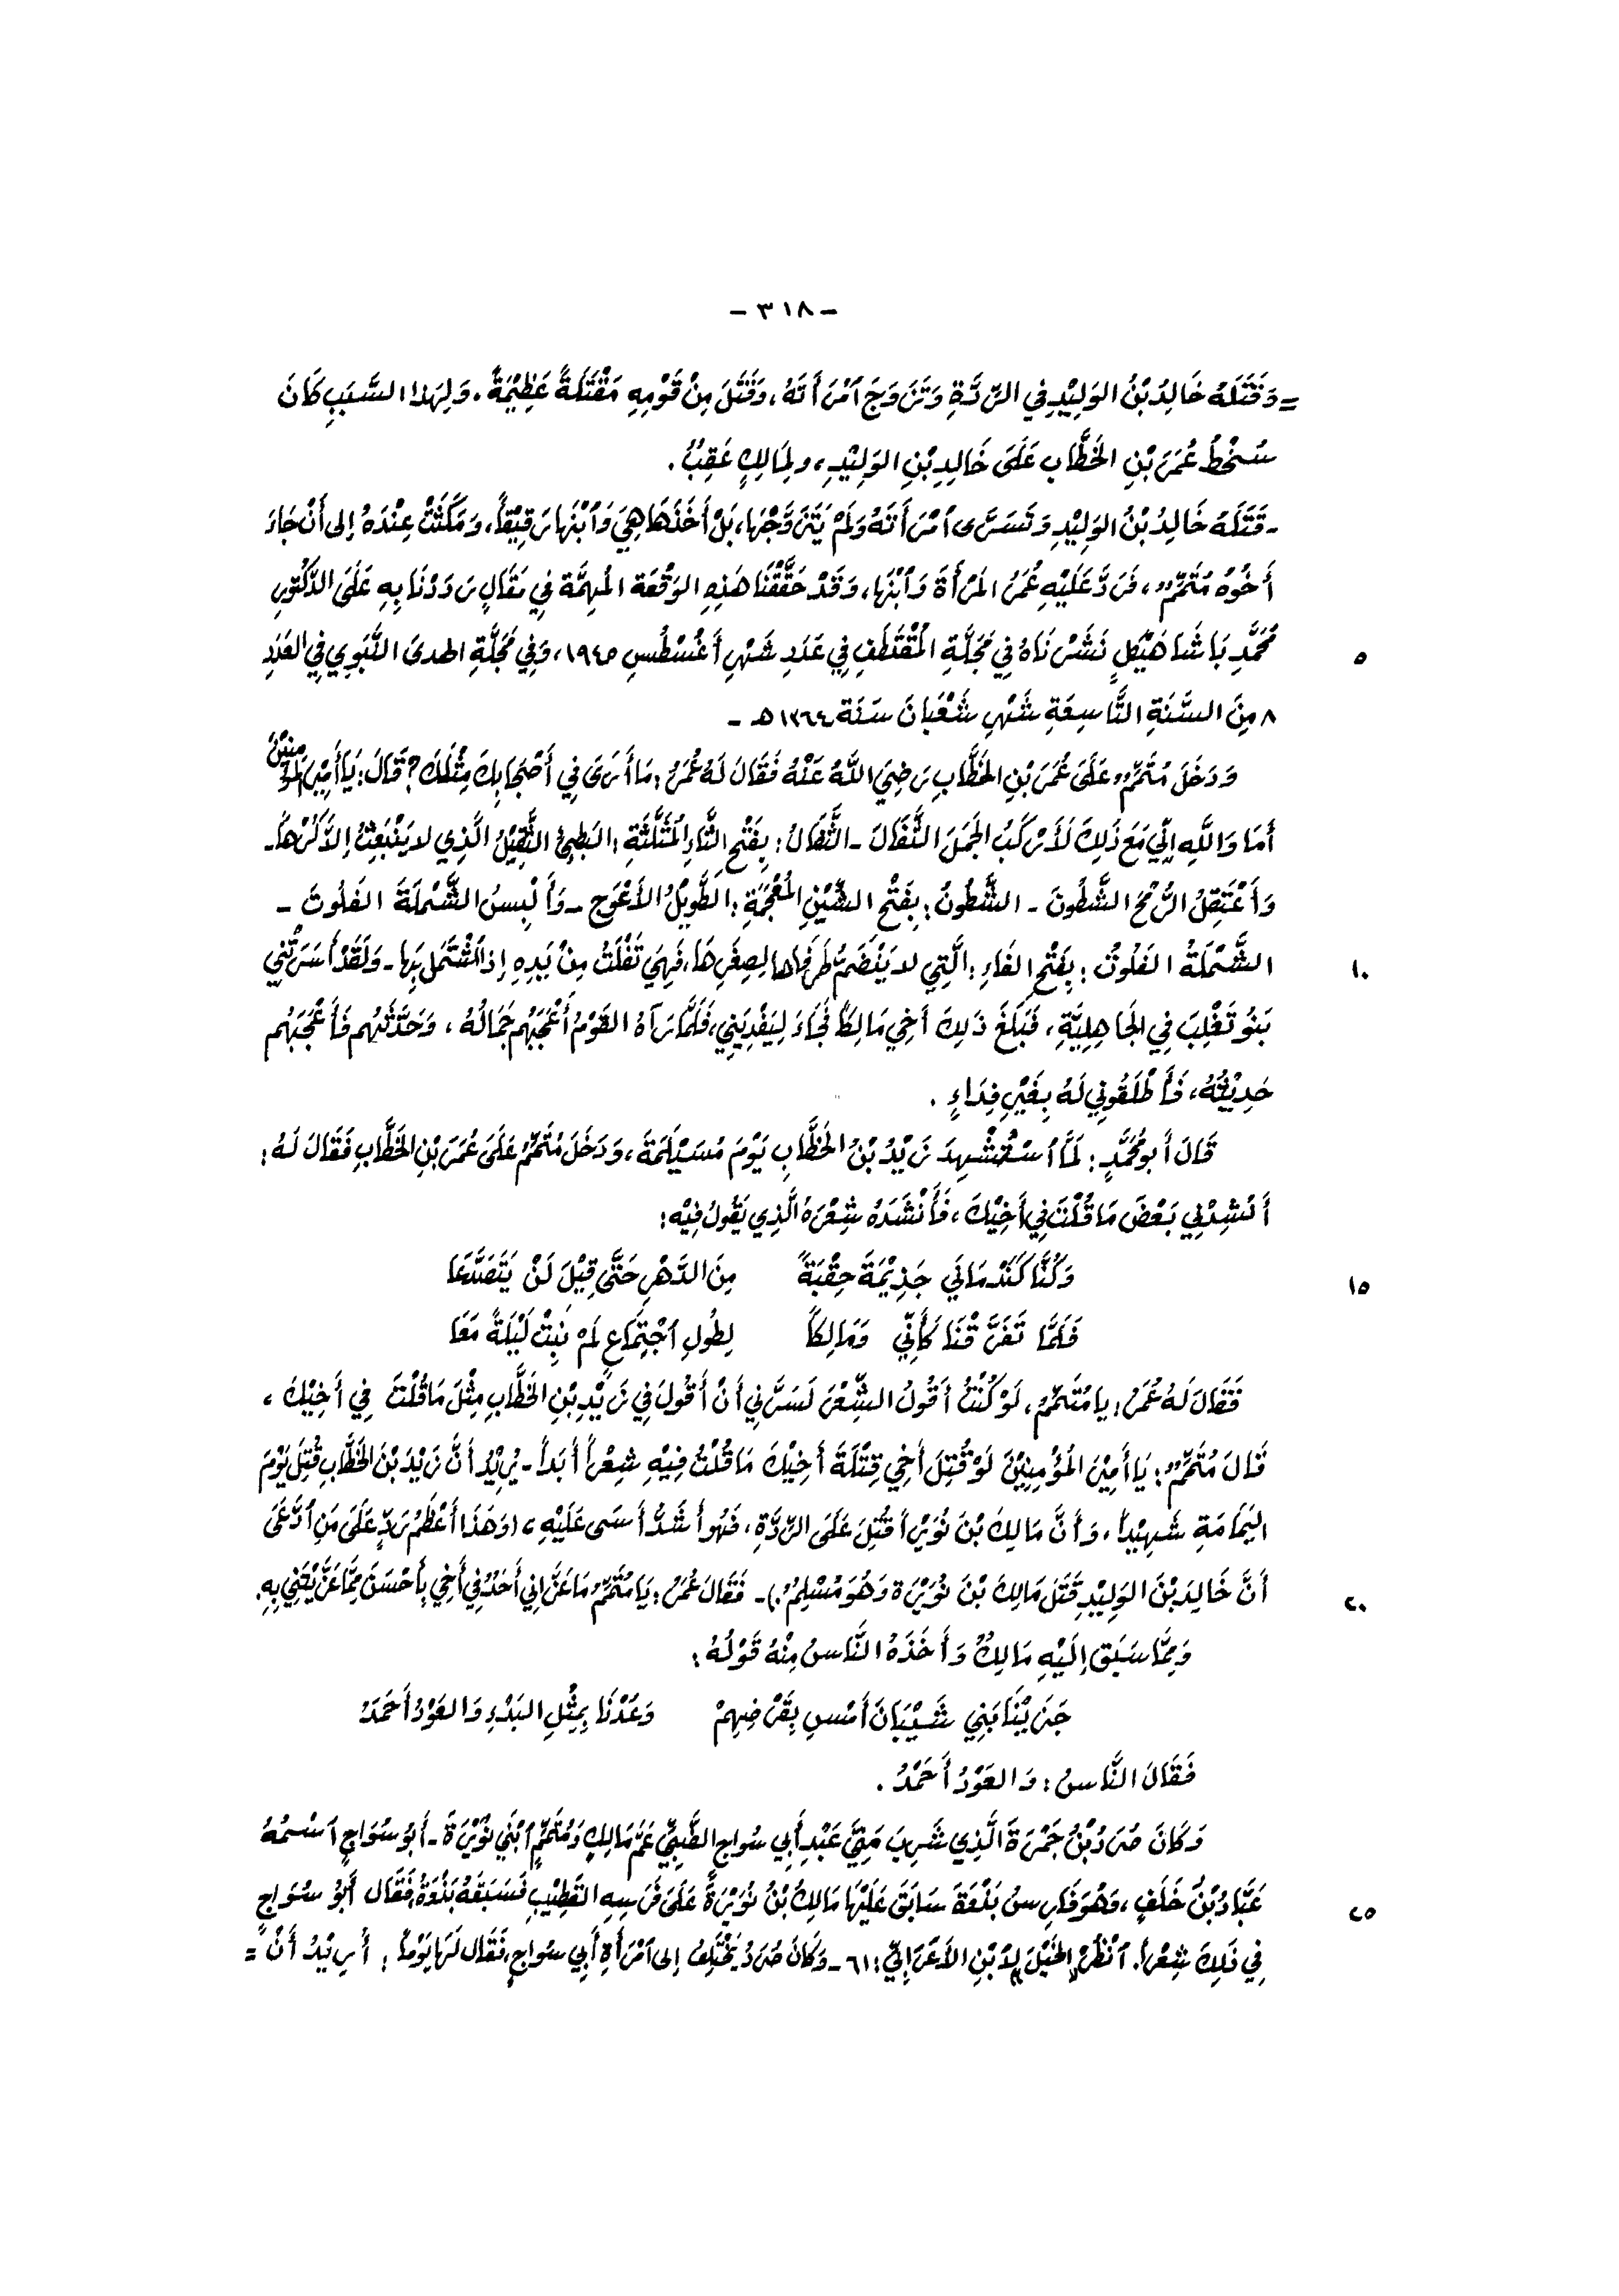 - ٣١٨ -
= وَقَتَلَهُ خَالِدُ بْنُ الوَلِيْدِ فِي الرِّدَّةِ وَتَزَوَّجَ ٱمْرَأَتَهُ، وَقَتَلَ مِنْ قَوْمِهِ مَقْتَلَةً عَظِيْمَةً. وَلِهَذا السَّبَبِ كَانَ
سُخْطُ عُمَرَ بْنِ الخَطَّابِ عَلَى خَالِدِ بْنِ الوَلِيْدِ، ولِمَالِكٍ عَقِبٌ.
- قَتَلَهُ خَالِدُ بْنُ الوَلِيْدِ وَتَسَرَّى ٱمْرَأَتَهُ وَلَمْ يَتَزَوَّجْهَا، بَلْ أَخَذَهَا هِيَ وَٱبْنَهَا رَقِيْقَاً، وَمَكَثَتْ عِنْدَهُ إلى أَنْ جَاءَ
أَخُوهُ مُتَمِّمٌ، فَرَدَّ عَلَيْهِ عُمَرُ المَرْأَةَ وَٱبْنَهَا، وَقَدْ حَقَّقْنَا هَذِهِ الوَقْعَةَ المُهِمَّة فِي مَقَالٍ رَدَدْنَا بِهِ عَلَى الدَّكْتُورِ
مُحَمَّدِ بَاشَا هَيْكَلٍ نَشَرْنَاهُ فِي مَجَلَّةِ المُقْتَطَفِ فِي عَدَدِ شَهْرِ أَغُسْطُسِ ١٩٤٥، وَفِي مَجَلَّةِ الهدىَ النَّبَوِي فِي العَدَدِ
٥
٨ مِنَ السَّنَةِ التَّاسِعَةِ شَهْرِ شَعْبَانَ سَنَة ١٣٦٤ هـ -
وَدَخَلَ مُتَمِّمٌ عَلَى عُمَرَ بْنِ الخَطَّابِ رَضِيَ اللَّهُ عَنْهُ فَقَالَ لَهُ عُمَرُ: مَا أَرَى فِي أَصْحَابِكَ مِثْلَكَ؟ قَالَ: يَا أَمِيْرَ المُؤْمِنِيْنَ
أَمَا وَاللَّهِ إِنِّي مَعَ ذَلِكَ لَأَرْكَبُ الجَمَلَ الثَّفَالَ - الثَّفَالُ: بِفَتْحِ الثَّاءِ المُثَلَّثَةِ: البَطِيءُ الثَّقِيْلُ الَّذِي لا يَنْبَعِثُ إِلاَّ كُرْهَاً -
وَأَعْتَقِلُ الرُّمْحَ الشَّطُونَ - الشَّطُونُ: بِفَتْحِ الشِّيْنِ المُعْجَمَةِ: الطَّوِيْلُ الأَعْوَجِ - وَأَلْبِسُ الشَّمْلَةَ الفَلُوتَ -
الشَّمْلَةُ الفَلُوتُ: بِفَتْحِ الفَاءِ: الَّتِي لا يَنْضَمُّ طَرَفَاهَا لِصِغَرِهَا، فَهِيَ تَفْلَتُ مِنْ يَدِهِ إِذَا ٱشْتَمَلَ بِهَا - وَلَقَدْ أَسَرَتْنِي
١٠
بَنُو تَغْلِبَ فِي الجَاهِلِيَّةِ، فَبَلَغَ ذَلِكَ أَخِي مَالِكَاً فَجَاءَ لِيَفْدِيَنِي، فَلَمَّا رَآهُ القَوْمُ أَعْجَبَهُمْ جَمَالُهُ، وَحَدَّثَهُم فَأَعْجَبَهُم
حَدِيْثُهُ، فَأَطْلَقُونِي لَهُ بِغَيْرِ فِدَاءٍ.
قَالَ أَبو مُحَمَّدٍ: لَمَّا ٱسْتُشْهِدَ زَيْدُ بْنُ الخَطَّابِ يَوْمَ مُسَيْلَمَةَ، وَدَخَلَ مُتَمِّمٌ عَلَى عُمَرَ بْنِ الخَطَّابِ فَقَالَ لَهُ:
أَنْشِدْنِي بَعْضَ مَا قُلْتَ فِي أَخِيْكَ، فَأَنْشَدَهُ شِعْرَهُ الَّذِي يَقُولُ فِيْهِ:
وَكُنَّا كَنَدْمَانَي جَذِيْمَةَ حِقْبَةً    مِنَ الدَّهْرِ حَتَّى قِيْلَ لَنْ يَتَصَدَّعَا
١٥
فَلَمَّا تَفَرَّقْنَا كَأَنِّي وَمَالِكَاً    لِطُولِ ٱجْتِمَاعٍ لَمْ نَبِتْ لَيْلَةً مَعَا
فَقَالَ لَهُ عُمَرُ: يا مُتَمِّمُ، لَوْ كُنْتُ أَقُولُ الشِّعْرَ لَسَرَّنِي أَنْ أَقُولَ فِي زَيْدِ بْنِ الخَطَّابِ مِثْلَ مَا قُلْتَ فِي أَخِيْكَ،
قَالَ مُتَمِّمٌ: يَا أَمِيْرَ المُؤْمِنِيْنَ لَوْ قُتِلَ أَخِي قِتْلَةَ أَخِيْكَ مَا قُلْتُ فِيْهِ شِعْرَاً أَبَدَاً - يُرِيْدُ أَنَّ زَيْدَ بْنَ الخَطَّابِ قُتِلَ يَوْمَ
اليَمَامَةِ شَهِيْدَاً، وَأَنَّ مَالِكَ بْنَ نُوَيْرَةَ قُتِلَ عَلَى الرِّدَّةِ، فَهُوَ أَشَدُّ أَسَى عَلَيْهِ، (وَهَذَا أَعْظَمُ رَدٍّ عَلَى مَنِ ٱدَّعَى
أَنَّ خَالِدَ بْنَ الوَلِيْدِ قَتَلَ مَالِكَ بْنَ نُوَيْرَة وَهُوَ مُسْلِمٌ.) - فَقَالَ عُمَرُ: يَا مُتَمِّمُ مَا عَزَّانِي أَحَدٌ فِي أَخِي بِأَحْسَنَ مِمَّا عَزَّيْتَنِي بِهِ.
٢٠
وَمِمَّا سَبَقَ إِلَيْهِ مَالِكٌ وَأَخَذَهُ النَّاسُ مِنْهُ قَوْلُهُ:
جَزَيْنَا بَنِي شَيْبَانَ أَمْسِ بِقَرْضِهِمْ    وَعُدْنَا بِمِثْلِ البَدْءِ وَالعَوْدُ أَحْمَدُ
فَقَالَ النَّاسُ: وَالعَوْدُ أَحْمَدُ.
وَكَانَ صُرَدُ بْنُ جَمْرَةَ الَّذِي شَرِبَ مَنِيَّ عَبْدِ أَبِي سُواجٍ الضَّبِّيِّ عَمَّ مَالِكٍ وَمُتَمِّمٍ ٱبْنَي نُوَيْرَةَ - أَبُو سُوَاجٍ ٱسْمُهُ
عَبَّادُ بْنُ خَلَفٍ، وَهُوَ فَارِسُ بَذْوَةَ سَابَقَ عَلَيْهَا مَالِكُ بْنُ نُوَيْرَةَ عَلَى فَرَسِهِ القَطِيْبِ فَسَبَقَهُ بَذْوَةُ، فَقَالَ أَبُو سُوَاجٍ
٢٥
فِي ذَلِكَ شِعْرَاً. ٱنْظُرْ «الخَيْلَ» لِٱبْنِ الأَعْرَابِيِّ: ٦١ - وَكَانَ صُرَدُ يَخْتَلِفُ إلى ٱمْرَأَةِ أَبِي سُواجٍ، فَقَالَ لَهَا يَوْمَاً: أُرِيْدُ أَنْ =